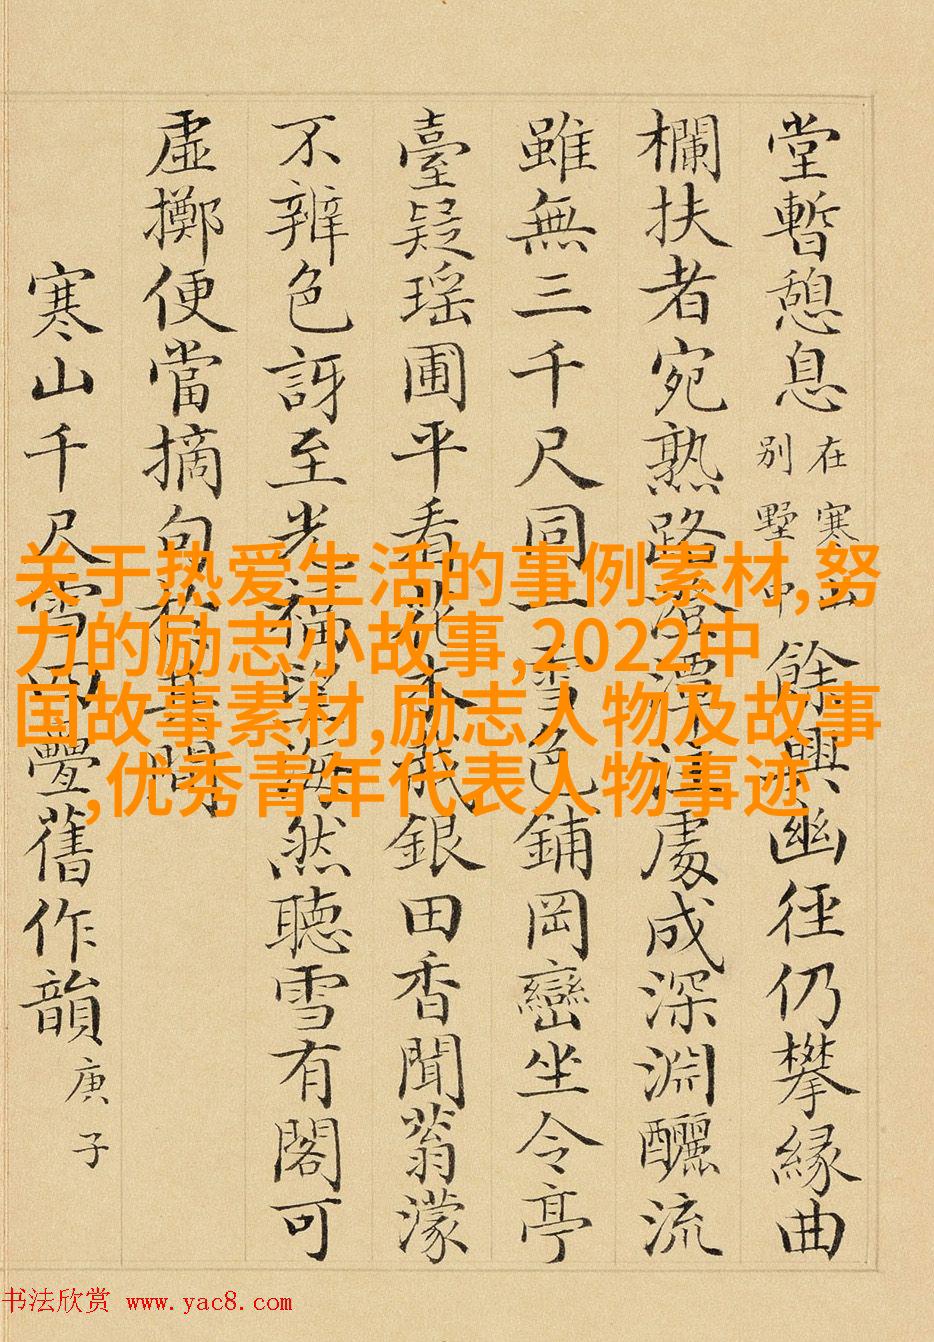 堂暫憩息
在寒山
別墅中
餘興幽徑仍攀緣曲
欄扶者宛熟路落潭注處成深淵釃流
雖無三千尺同一雪色鋪岡巒坐令亭
臺疑瑤圃平看花木成銀田香聞蓊濛
不辨色訝至光福望海然聽雪有閣可
虛擲便當摘句於其間
寒山千尺雪疊舊作韻
庚子
关于热爱生活的事例素材,努
力的励志小故事,2022中
国故事素材,励志人物及故事
,优秀青年代表人物事迹
书法欣赏 www.yac8.com